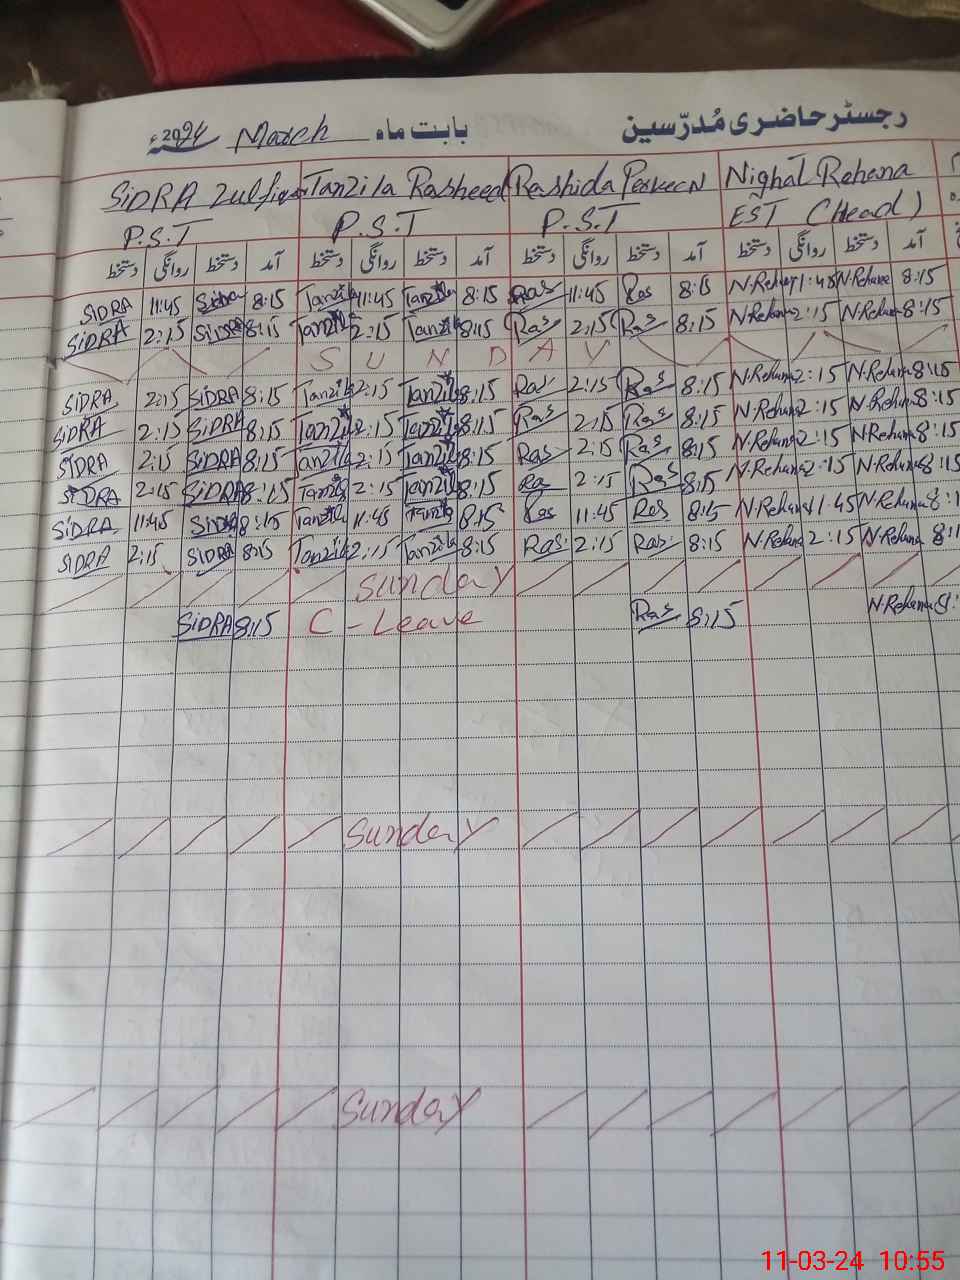 رجسٹر حاضری مُدرّسین بابت ماہ March 2024ء
SiDRA Zulfiqar Tanzila Rasheed Rashida Perveen Nighat Rehana
P.S.T P.S.T P.S.T EST (Head)
دستخط روانگی دستخط آمد دستخط روانگی دستخط آمد دستخط روانگی دستخط آمد دستخط روانگی دستخط آمد
SiDRA 11:45 Sidra 8:15 Tanzila 11:45 Tanzila 8:15 Ras 11:45 Ras 8:15 N.Rehana 11:45 N.Rehana 8:15
SiDRA 2:15 SiDRA 8:15 Tanzila 2:15 Tanzila 8:15 Ras 2:15 Ras 8:15 N.Rehana 2:15 N.Rehana 8:15
SUNDAY
SiDRA 2:15 SiDRA 8:15 Tanzila 2:15 Tanzila 8:15 Ras 2:15 Ras 8:15 N.Rehana 2:15 N.Rehana 8:15
SiDRA 2:15 SiDRA 8:15 Tanzila 2:15 Tanzila 8:15 Ras 2:15 Ras 8:15 N.Rehana 2:15 N.Rehana 8:15
SiDRA 2:15 SiDRA 8:15 Tanzila 2:15 Tanzila 8:15 Ras 2:15 Ras 8:15 N.Rehana 2:15 N.Rehana 8:15
SiDRA 2:15 SiDRA 8:15 Tanzila 2:15 Tanzila 8:15 Ra 2:15 Ras 8:15 N.Rehana 2:15 N.Rehana 8:15
SiDRA 11:45 SiDRA 8:15 Tanzila 11:45 Tanzila 8:15 Ras 11:45 Ras 8:15 N.Rehana 11:45 N.Rehana 8:1
SiDRA 2:15 SiDRA 8:15 Tanzila 2:15 Tanzila 8:15 Ras 2:15 Ras 8:15 N.Rehana 2:15 N.Rehana 8:1
Sunday
SiDRA 8:15 C-Leave Ras 8:15 N.Rehana 8:
Sunday
Sunday
11-03-24 10:55